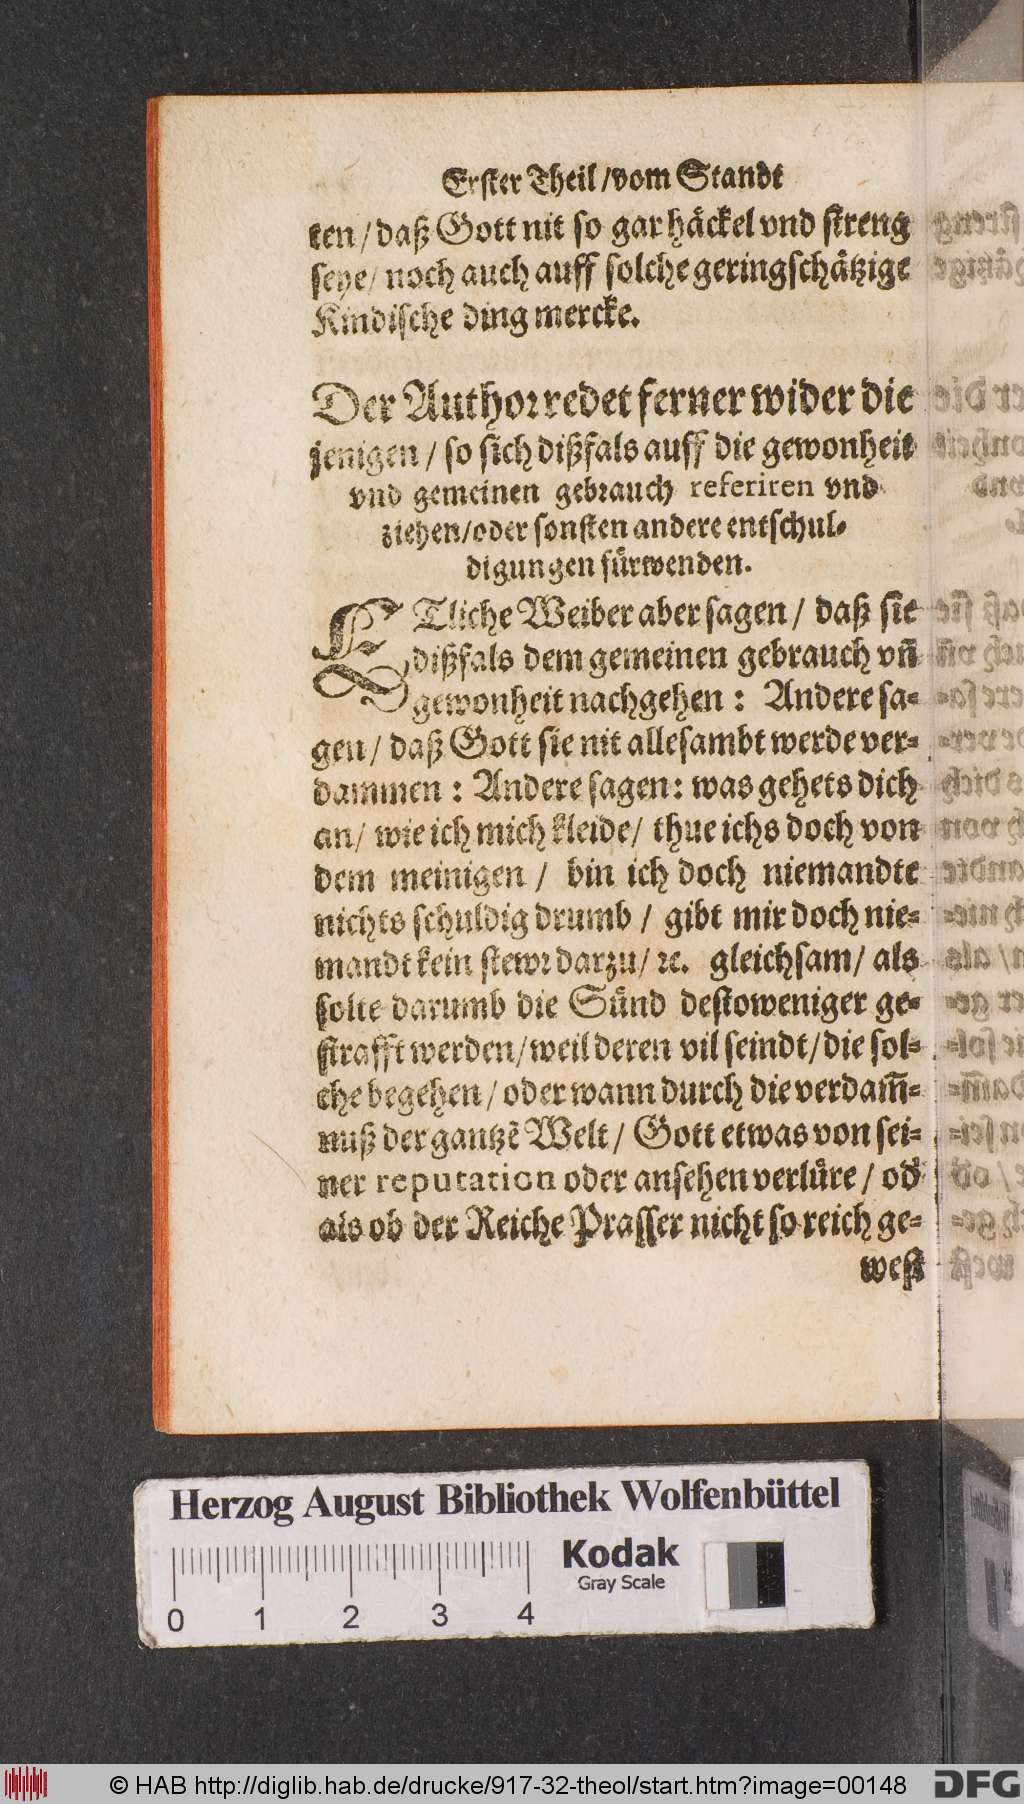 Erster Theil /vom Standt
ten / daß Gott nit so gar häckel vnd streng
seye / noch auch auff solche geringschätzige
Kindische ding mercke.
Der Author redet ferner wider die
jenigen / so sich dißfals auff die gewonheit
vnd gemeinen gebrauch referiren vnd
ziehen/oder sonsten andere entschul-
digungen fürwenden.
ETliche Weiber aber sagen / daß sie
dißfals dem gemeinen gebrauch vñ
gewonheit nachgehen : Andere sa-
gen / daß Gott sie nit allesambt werde ver-
dammen : Andere sagen: was gehets dich
an/ wie ich mich kleide/ thue ichs doch von
dem meinigen / bin ich doch niemandte
nichts schuldig drumb / gibt mir doch nie-
mandt kein stewr darzu/ ꝛc. gleichsam/ als
solte darumb die Sünd destoweniger ge-
strafft werden/weil deren vil seindt/die sol-
che begehen / oder wann durch die verdam̃-
nuß der gantzẽ Welt / Gott etwas von sei-
ner reputation oder ansehen verlüre / od'
als ob der Reiche Prasser nicht so reich ge-
west
Herzog August Bibliothek Wolfenbüttel
Kodak
Gray Scale
0 1 2 3 4
© HAB http://diglib.hab.de/drucke/917-32-theol/start.htm?image=00148
DFG